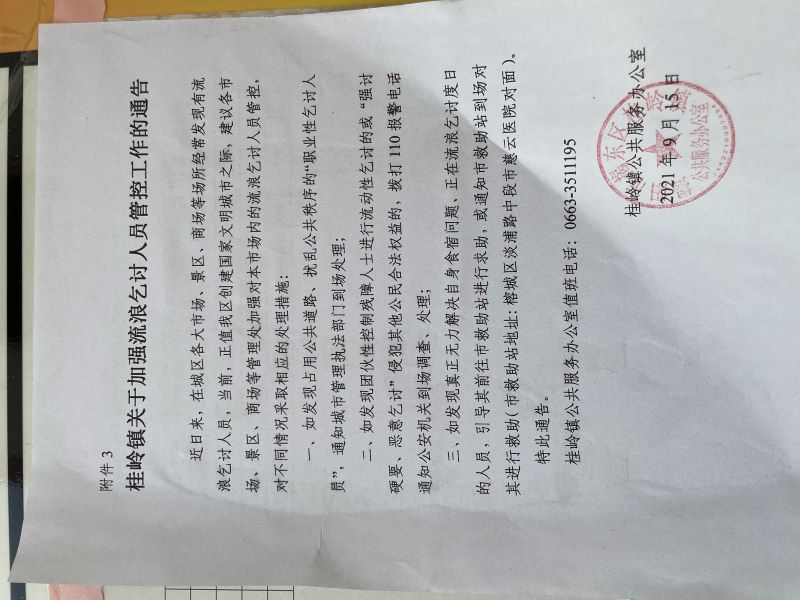 附件 3
桂岭镇关于加强流浪乞讨人员管控工作的通告
近日来，在城区各大市场、景区、商场等场所经常发现有流
浪乞讨人员，当前，正值我区创建国家文明城市之际，建议各市
场、景区、商场等管理处加强对本市场内的流浪乞讨人员管控，
对不同情况采取相应的处理措施：
一、如发现占用公共道路、扰乱公共秩序的“职业性乞讨人
员”，通知城市管理执法部门到场处理；
二、如发现团伙性控制残障人士进行流动性乞讨的或“强讨
硬要、恶意乞讨”侵犯其他公民合法权益的，拨打 110 报警电话
通知公安机关到场调查、处理；
三、如发现真正无力解决自身食宿问题、正在流浪乞讨度日
的人员，引导其前往市救助站进行求助，或通知市救助站到场对
其进行救助（市救助站地址：榕城区淡浦路中段市慈云医院对面）。
特此通告。
桂岭镇公共服务办公室值班电话：0663-3511195
桂岭镇公共服务办公室
2021 年 9 月 15 日
公共服务办公室